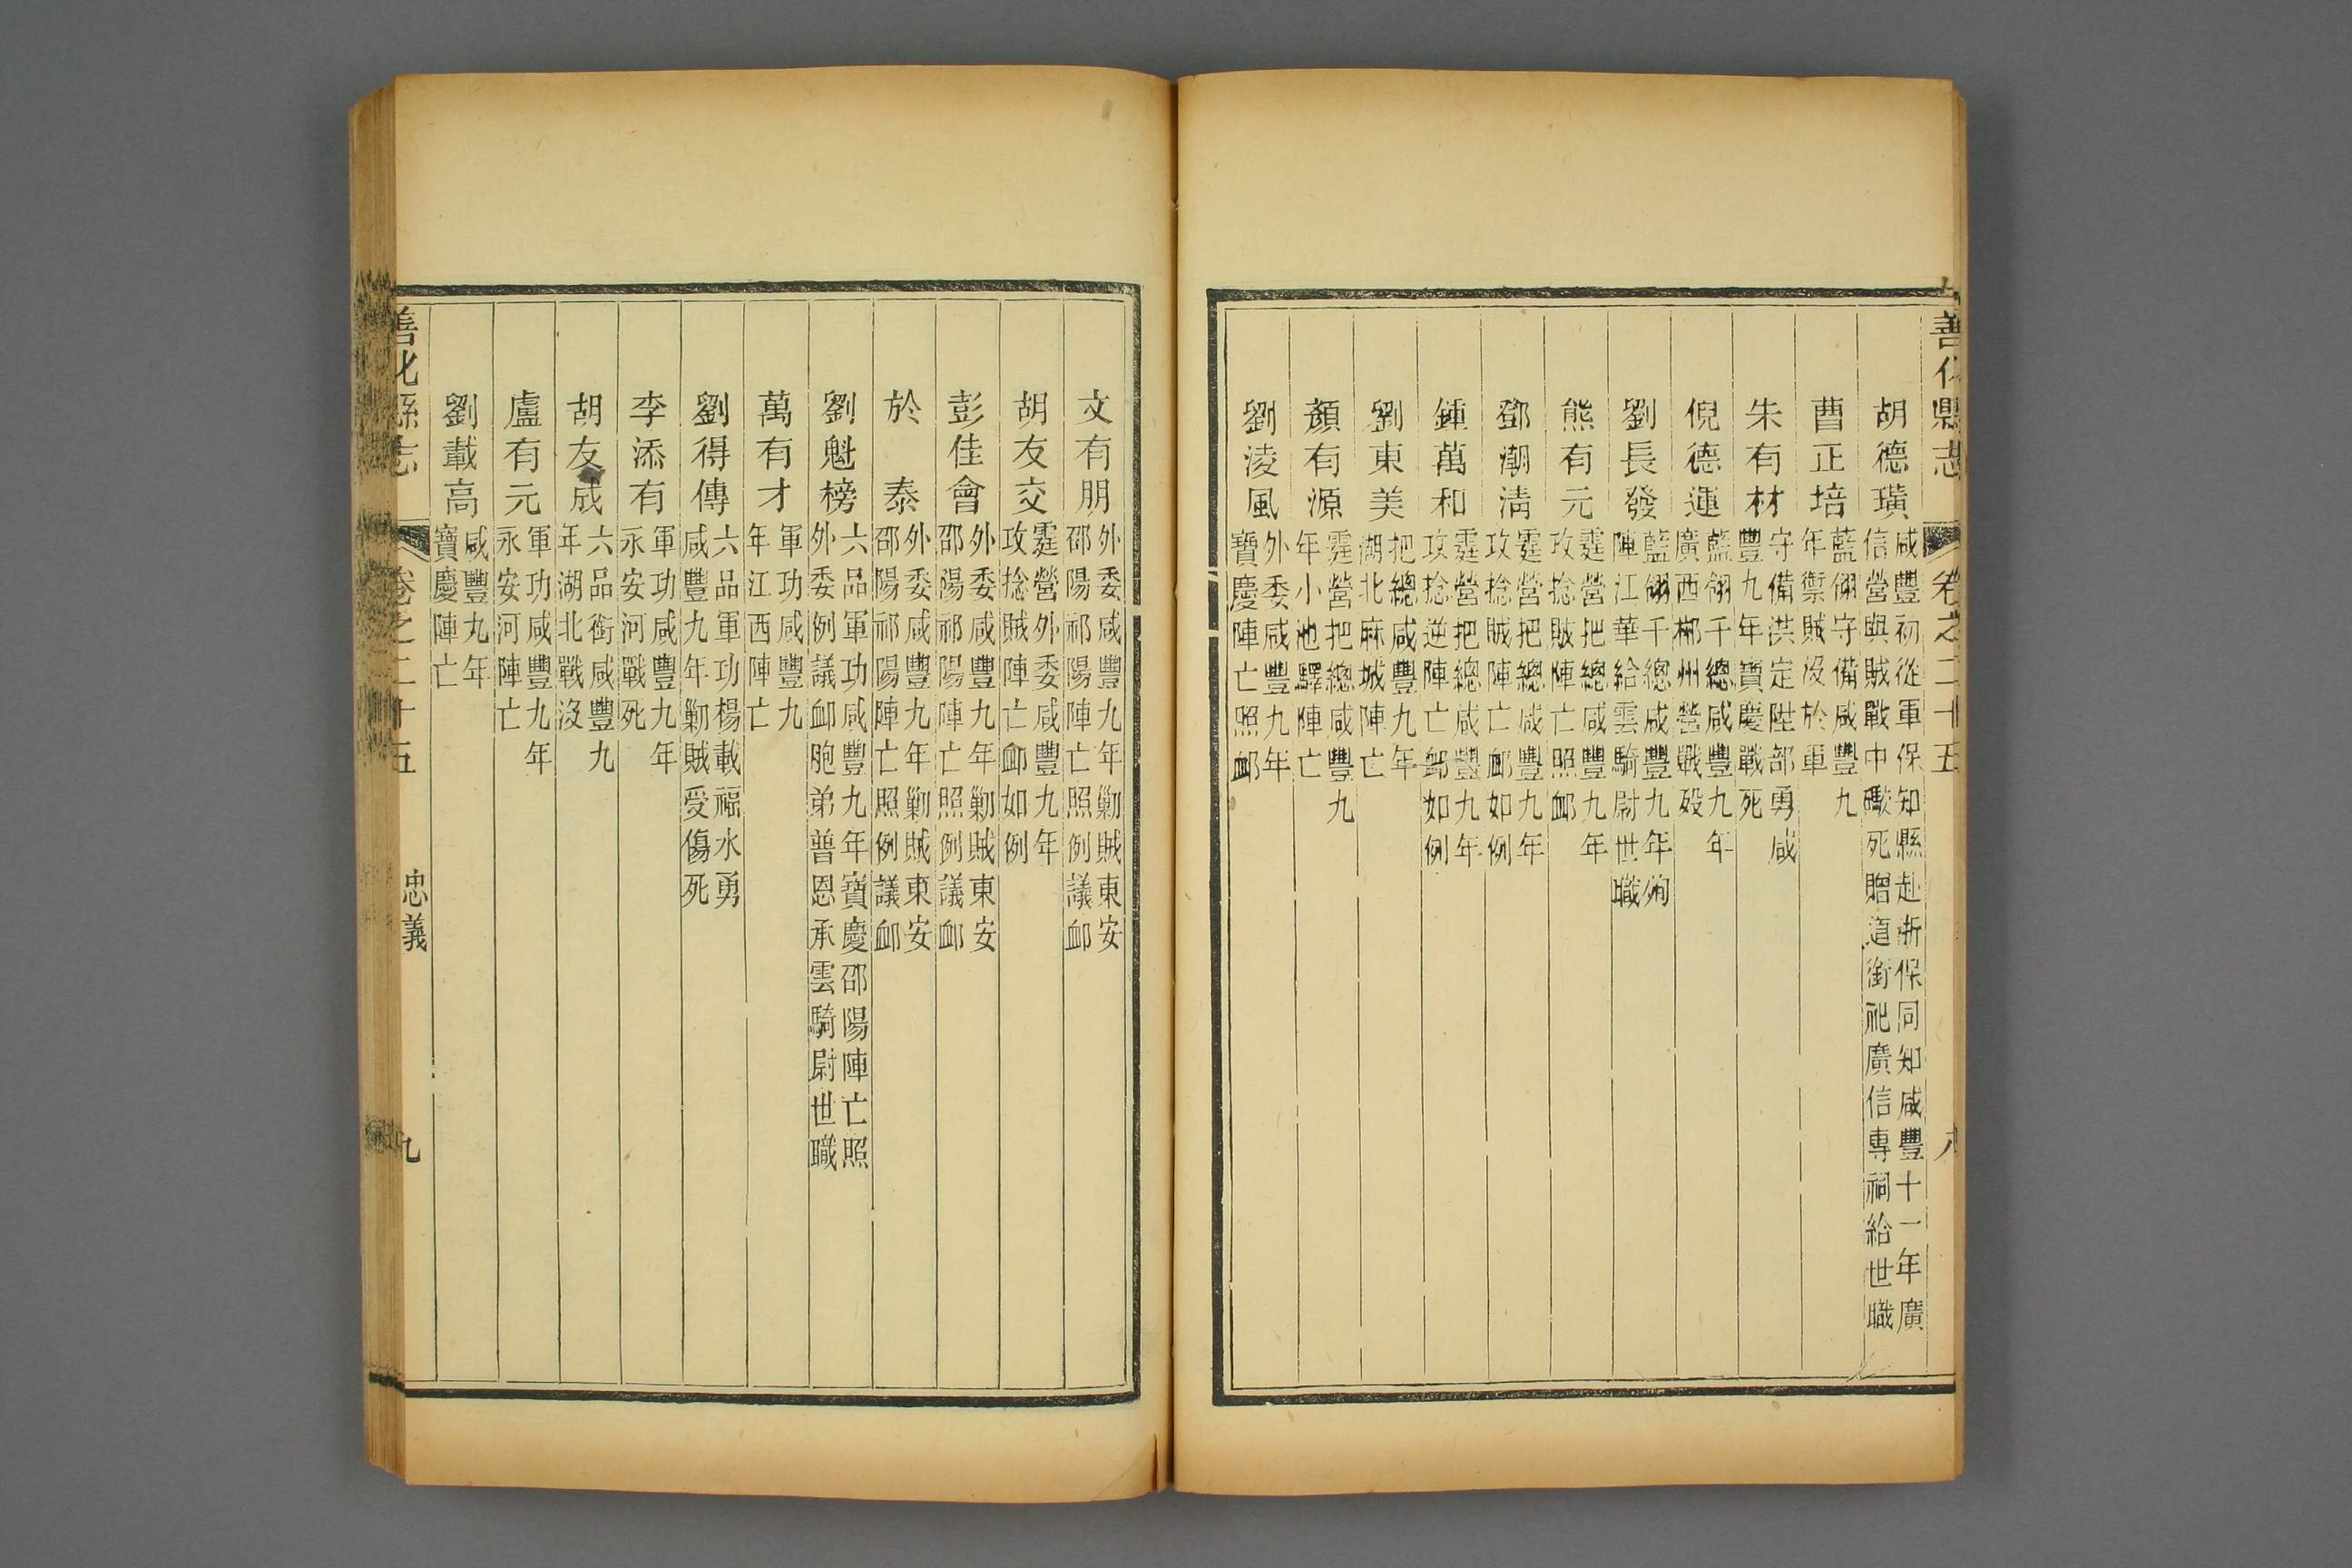 善化縣志
卷之二十五
八
胡德璜
咸豐初從軍保知縣赴浙保同知咸豐十一年廣
信營與賊戰中礮死贈道銜祀廣信專祠給世職
曹正培
藍翎守備咸豐九
年禦賊沒於軍
朱有材
守備洪定陞部勇咸
豐九年寶慶戰死
倪德運
藍翎千總咸豐九年
廣西郴州營戰歿
劉長發
藍翎千總咸豐九年殉
陣江華給雲騎尉世職
熊有元
霆營把總咸豐九年
攻捻賊陣亡照卹
鄧潮清
霆營把總咸豐九年
攻捻賊陣亡卹如例
鍾萬和
霆營把總咸豐九年
攻捻逆陣亡卹如例
劉東美
把總咸豐九年
湖北麻城陣亡
顏有源
霆營把總咸豐九
年小池驛陣亡
劉淩風
外委咸豐九年
寶慶陣亡照卹
文有朋
外委咸豐九年剿賊東安
邵陽祁陽陣亡照例議卹
胡友交
霆營外委咸豐九年
攻捻賊陣亡卹如例
彭佳會
外委咸豐九年剿賊東安
邵陽祁陽陣亡照例議卹
於泰
外委咸豐九年剿賊東安
邵陽祁陽陣亡照例議卹
劉魁榜
六品軍功咸豐九年寶慶邵陽陣亡照
外委例議卹胞弟普恩承雲騎尉世職
萬有才
軍功咸豐九
年江西陣亡
劉得傳
六品軍功楊載福水勇
咸豐九年剿賊受傷死
李添有
軍功咸豐九年
永安河戰死
胡友成
六品銜咸豐九
年湖北戰沒
盧有元
軍功咸豐九年
永安河陣亡
劉載高
咸豐九年
寶慶陣亡
善化縣志
卷之二十五
忠義
九